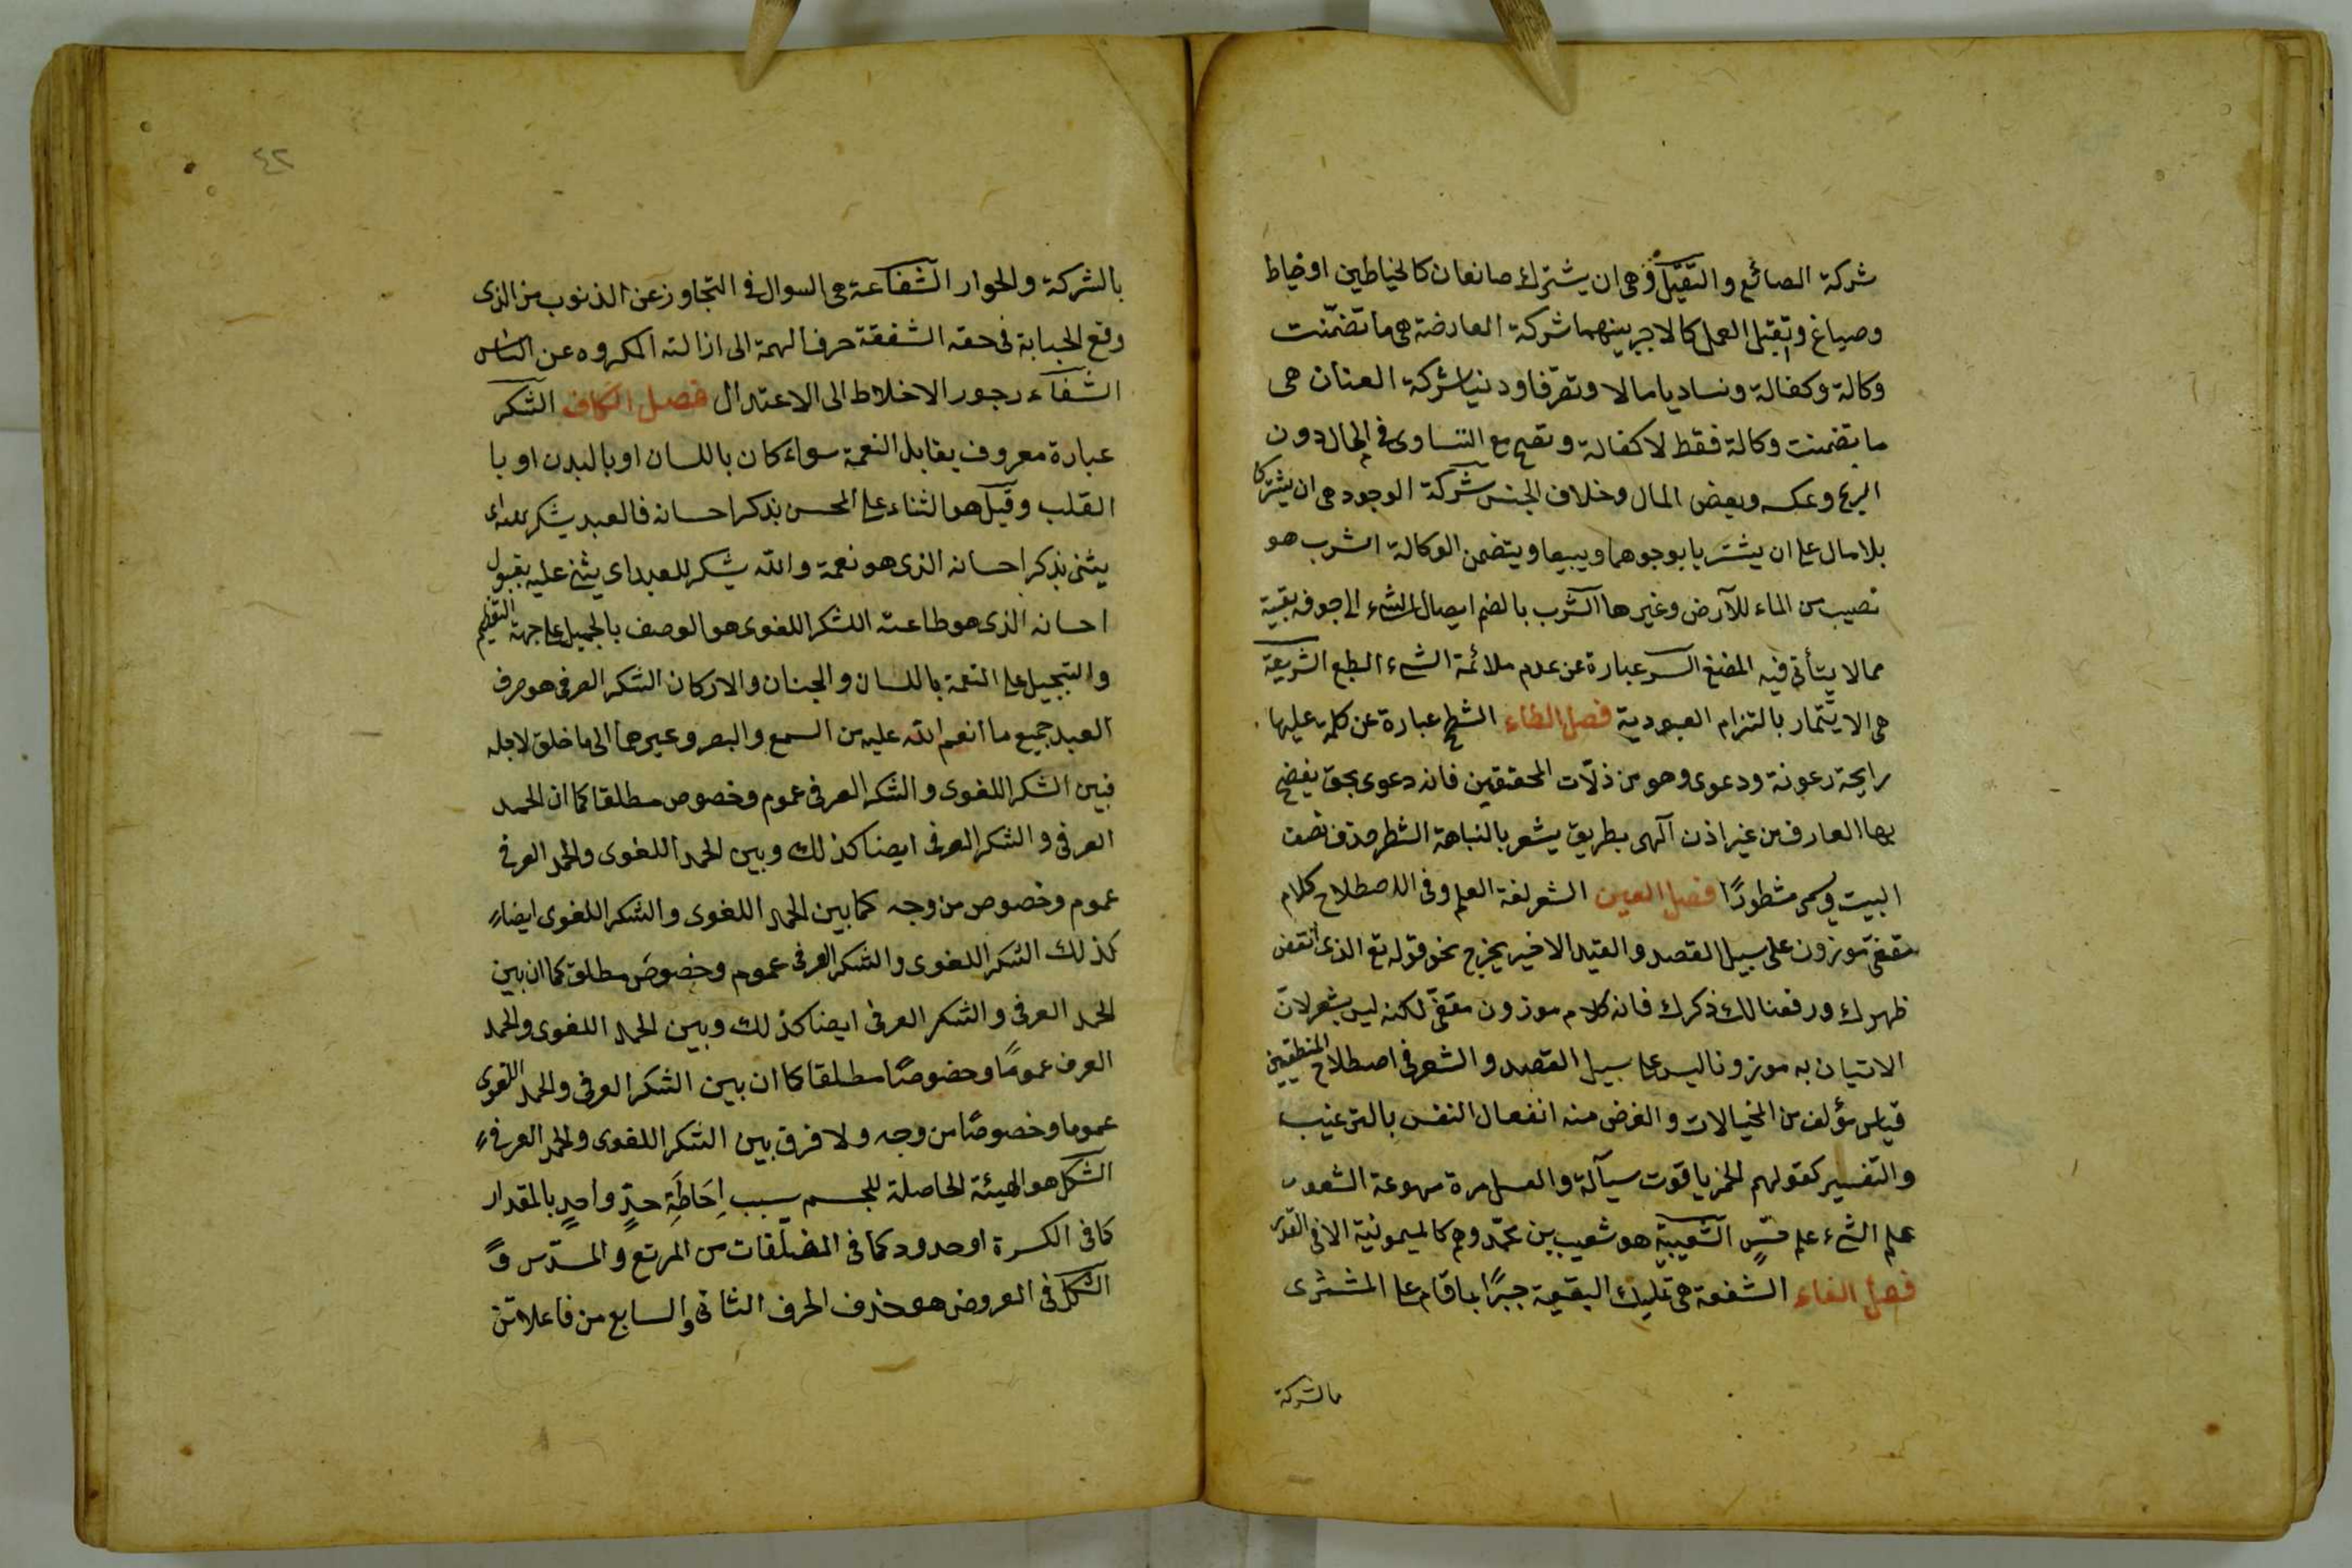 شركة الصائع والتقبّل وهى ان يشترك صانعان كالخياطين او خياط
وصباغ وتقبل العمل كالاجر بينهما شركة العارضة هى ما تضمّنت
وكالة وكفالة وتساويا مالا وتصرّفا ودنيا شركة العنان هى
ما تضمنت وكالة فقط لا كفالة وتصح مع التساوى فى المال دون
الربح وعكسه وبعض المال وخلاف الجنس شركة الوجود هى ان يشتركا
بلا مال على ان يشتريا بوجوههما ويبيعا ويتضمن الوكالة الشرب هو
نصيب من الماء للآرض وغيرها الشرب بالضم ايصال الشئ الى جوفه بفيه
مما لا يتأتى فيه المضغ الشر عبارة عن عدم ملائمة الشئ الطبع الشريعة
هى الايتمار بالتزام العبودية فصل الطاء الشطح عبارة عن كلمة عليها
رايحة رعونة ودعوى وهو من ذلّات المحققين فانه دعوى بحق يفضح
بها العارف من غير اذن آلهى بطريق يشعر بالنباهة الشطر حذف نصف
البيت ويسمى مشطورًا فصل العين الشعر لغة العلم وفى الاصطلاح كلام
مقفى موزون على سبيل القصد والقيد الاخير يخرج نحو قوله تع الذى انقض
ظهرك ورفعنا لك ذكرك فانه كلام موزون مقفّى لكنه ليس بشعر لانّ
الاتيان به موزونا ليس على سبيل القصد والشعر فى اصطلاح المنطقيين
قياس مؤلف من المخيالات والغرض منه انفعال النفس بالترغيب
والتفسير كقولهم الخمر ياقوت سيآلة والعسل مرة مهوعة الشعور
علم الشئ علم حسٍّ الشعيبيّة هو شعيب بن محمّد وهم كالميمونية الا فى القدر
فصل الفاء الشفعة هى تمليك البقيعة جبرًا بما قام على المشترى
بالشركة
٤٢
بالشركة والجوار الشفاعة هى السوال فى التجاوز عن الذنوب من الذى
وقع الجباية فى حقه الشفقة حرف الهمة الى ازالته المكروه عن الناس
الشفآء رجور الاخلاط الى الاعتدال فصل الكاف الشكر
عبارة معروف يقابل النعمة سواء كان باللسان او بالبدن او با
القلب وقيل هو الثناء على المحسن بذكر احسانه فالعبد يشكر لله اى
يثنى بذكر احسانه الذى هو نعمة والله يشكر للعبد اى يثنى عليه بقبول
احسانه الذى هو طاعته الشكر اللغوى هو الوصف بالجميل على جهة التعظيم
والتبجيل على النعمة باللسان والجنان والاركان الشكر العرفى هو صرف
العبد جميع ما انعم الله عليه من السمع والبصر وغيرهما الى ما خلق لاجله
فبين الشكر اللغوى والشكر العرفى عموم وخصوص مطلقا كما ان الحمد
العرفى والشكر العرفى ايضا كذلك وبين الحمد اللغوى والحمد العرفى
عموم وخصوص من وجه كما بين الحمد اللغوى والشكر اللغوى ايضاء
كذلك الشكر اللغوى والشكر العرفى عموم وخصوص مطلق كما ان بين
الحمد العرفى والشكر العرفى ايضا كذلك وبين الحمد اللغوى والحمد
العرف عمومًا وخصوصًا مطلقا كما ان بين الشكر العرفى والحمد اللغوى
عموما وخصوصًا من وجه ولا فرق بين الشكر اللغوى والحمد العرفى
الشكل هو الهيئة الحاصلة للجسم بسبب اِحَاطَةِ حدٍّ واحدٍ بالمقدار
كما فى الكرة او حدود كما فى المضلّقات من المربّع والمسدّس و
الشكل فى العروض هو حذف الحرف الثانى والسابع من فاعلاتن